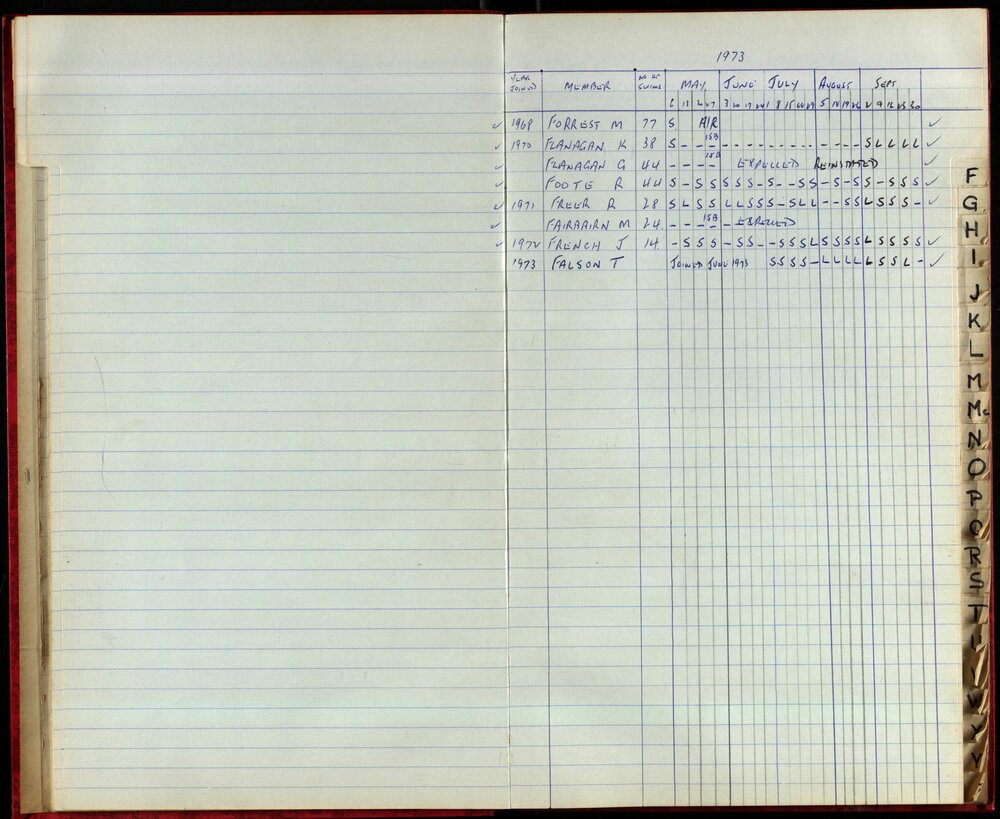 1973
YEAR JOINED MEMBER NO OF SWIMS MAY JUNE JULY AUGUST SEPT
6 13 27 3 10 17 24 1 8 15 22 29 5 12 19 26 2 9 16 23 30
✓ 1968 FORREST M 77 S AIR ✓
✓ 1970 FLANAGAN K 38 S - - - ISB - - - - - - - - - - - - - S L L L L ✓
✓ FLANAGAN G 44 - - - - ISB EXPELLED REINSTATED ✓
✓ FOOTE R 44 S - S S S S S - S - - S S - S - S S - S S S ✓
✓ 1971 FREER R 28 S L S S L L S S S - S L L - - S S L S S S - ✓
✓ FAIRBAIRN M 24 - - - - ISB - EXPELLED
✓ 1972 FRENCH J 14 - S S S - S S - - S S S L S S S S L S S S S ✓
1973 FALSON T JOINED JULY 1973 S S S S - L L L L L S S L - ✓
F
G
H
I
J
K
L
M
Mc
N
O
P
Q
R
S
T
U
V
W
Y